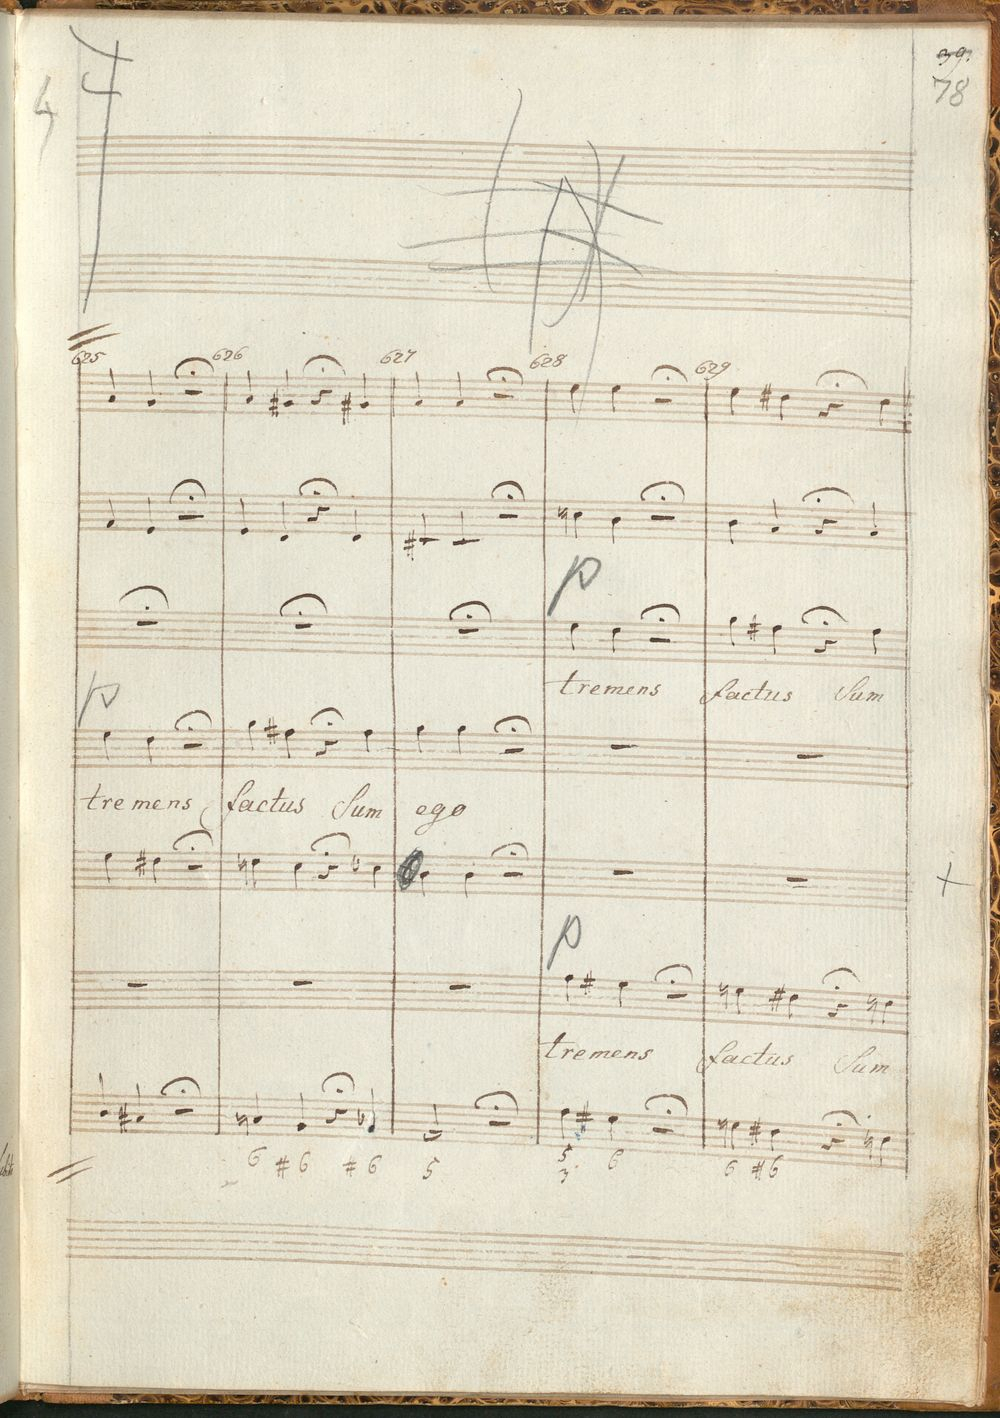 39.
78
4
625 626 627 628 629
p
tremens factus Sum
p
tremens factus Sum ego
p
tremens factus Sum
6 #6 #6 5 5 6 6 #6
3